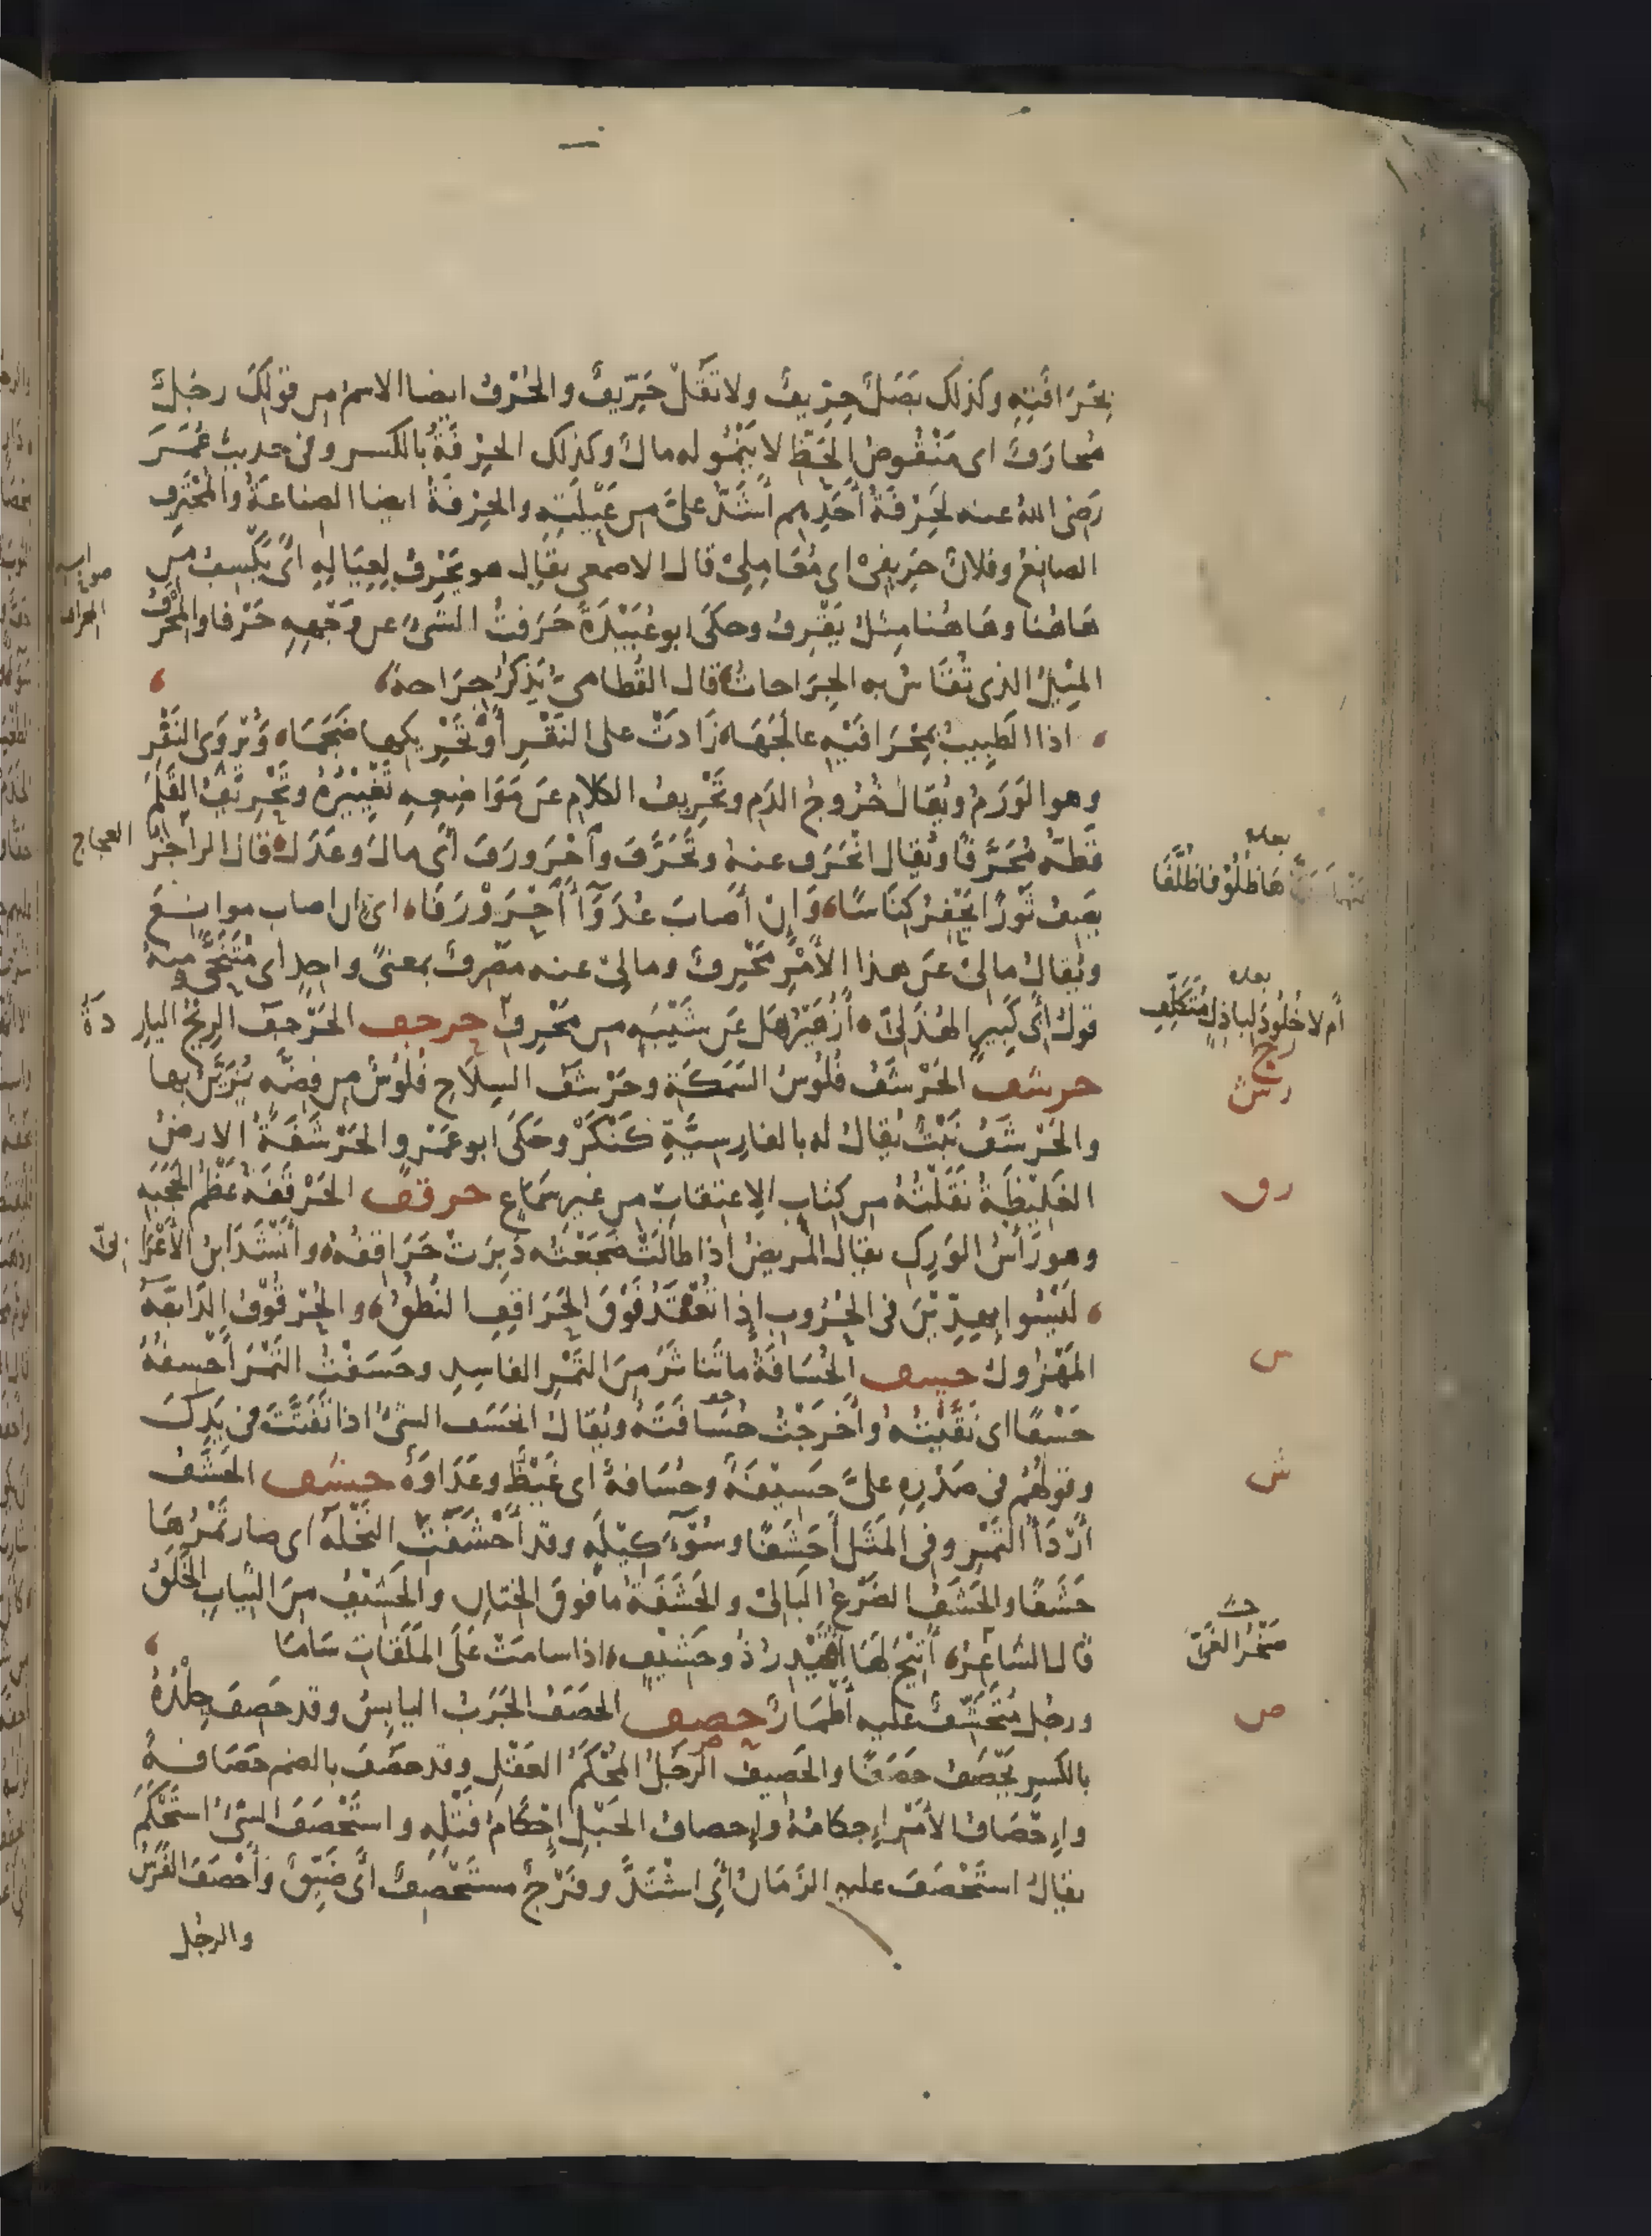 بِحَرَافَتِهِ وكذلك بَصَلٌ حِرِّيفٌ ولا تَقُلْ حَرِّيفٌ والحُرْفُ ايضا الاسمُ من قولكَ رجُلٌ
مُحارَفٌ اى مَنْقُوصُ الحَظِّ لا يَنْمُو له مالٌ وكذلك الحِرْفَةُ بالكسر وفى حديث عُمَرَ
رَضىَ اللهُ عنه لَحِرْفَةُ أَحَدِهِم أَشَدُّ علىَّ من عَيْلَتِهِ والحِرْفَةُ ايضا الصناعَةُ والمُحْتَرِف
الصانِعُ وفلانٌ حَرِيفِىْ اى مُعَامِلِىْ قال الاصمعى يقال هو يَحْرِفُ لِعِيَالِهِ أَىْ يَكْسِبُ من
هَاهُنا وهَاهُنا مِثلُ يَقْرِفُ وحكَى ابو عُبَيْدَةَ حَرَفْتُ الشىءَ عن وَجْهِهِ حَرْفا والمِحْرَفُ
المِيْلُ الذى تُقَاسُ به الجِرَاحاتُ قال القُطامىُّ يَذكرُ جِرَاحةً
اذا الطَبِيبُ بِمِحْرَافَيْهِ عالَجَهَا زَادَتْ على النَقْرِ أَوْ تَحْرِيكِها ضَجَمَا وَيُرْوَى النَفْر
وهو الوَرَمُ ويُقال خُرُوجُ الدَم وتَحْرِيفُ الكلام عَن مَوَاضِعِهِ تَغْيِيْرُهُ وتَحْرِيْفُ القَلَمِ
قَطُّهُ مُحَرَّفًا ويُقال انْحَرَف عنهُ وتَحَرَّفَ وَاحْرَورَفَ أَىْ مالَ وعَدَلَ قال الراجزُ العجاج
يصِفُ ثَوْرًا يَحْفِرُ كِنَاسًا وَإِنْ أَصَابَ عُدَوَآءَ احْرَوْرَفَا اى ان اصاب موانِعَ
ويُقالُ مالىْ عَن هذا الأَمْرِ مَحْرِفٌ ومالىْ عنه مَصْرِفٌ بمعنىً واحِدٍ اى مُتَنَحًّى ومنهُ
قولُ أَبى كَبِيرٍ الهُذَلىِّ أَزُهَيْرُ هَل عَن شَيْبَةٍ من مَحْرِفِ حرجف الحَرْجَفُ الرِيْحُ البارِدَةُ
حرشف الحَرْشَفُ فُلُوْسُ السَمَكَةِ وحَرْشَفُ السِلَاحِ فُلُوْسٌ من فِضَّهٍ يُزَيَّنُ بها
والحَرْشَفُ نَبْتٌ يُقالُ له بالفارِسِيَّةِ كَنْكَرْ وحَكَى ابو عَمْرٍو الحَرْشَفَةُ الارضُ
الغَلِيْظَةُ نَقَلْتُهُ من كِتابِ الاعتِقابِ من غيرِ سَمَاع حرقف الحَرْقَفَةُ عَظْمُ الحَجَبَةِ
وهو رَأْسُ الوَرِكِ يقالُ المريضُ اذا طالَتْ ضَجْعَتُه دَبِرَتْ حَرَاقِفُهُ وأَنْشَدَ ابنُ الأَعْرَابىِّ
لَيْسُوا بِهِدِّيْنَ فى الحُرُوبِ إِذا تُعْقَدُ فَوْقَ الحَرَاقِفِ النُطُقُ والحُرْقُوْفُ الدَابَّةُ
المَهْزُولُ حسف الحُسَافَةُ ما تَناثَرَ مِنَ التَمْرِ الفاسِدِ وحَسَفْتُ التَمْرَ أَحْسِفُهُ
حَسْفًا اى نَقَّيْتُهُ وأَخرَجْتُ حُسَافَتَهُ ويُقالُ انحَسَف الشىْءُ اذا تَفَتَّتَ فى يَدِكَ
وقولُهُم فى صَدْرِهِ علىَّ حَسِيْفَةٌ وحُسَافَةٌ اى غَيْظٌ وعَدَاوَةٌ حشف الحَشَفُ
أَرْدَأُ التَمْرِ وفى المَثَلِ أَحَشَفًا وسُوْءَ كِيْلَةٍ وقد أَحْشَفَتِ النَخْلَةُ اى صار تَمْرُهَا
حَشَفًا والحَشَفُ الضَرْعُ البَالىْ والحَشَفَةُ ما فَوقَ الخِتانِ والحَشِيْفُ مِنَ الثِيابِ الخَلَقُ
قال الشاعِرُ أُتِيْحَ لَهَا أُقَيْدِرُ ذُو حَشِيْفٍ اذا سامَتْ عَلَى المَلَقاتِ سَامَا
ورجُل مُتَحَشِّفٌ عليه أَطْمَارٌ حصف الحَصَفُ الجَرَبُ اليابِسُ وقد حَصِفَ جِلْدُهُ
بالكَسرِ يَحْصَفُ حَصَفًا والحَصِيفُ الرَجُلُ المُحْكَمُ العَقْلِ وقد حَصُفَ بالضم حَصَافَةً
وإِحْصَافُ الأَمْرِ إِحكامُهُ وإِحصافُ الحَبْلِ إِحْكَامُ فَتْلِهِ واسْتَحْصَفَ الشىْءُ اسْتَحْكَمَ
يقالُ استَحْصَفَ عليهِ الزَمَانُ أَىِ اشْتَدَّ وفَرْجٌ مستَحْصِفٌ أَىْ ضَيِّقٌ وأَحْصَفَ الفَرَسُ
والرجُل
بعده
هَا ظُلُوْفًا ظُلَّفَا
بعده
أَم لا خُلُودَ لِباذِلٍ مُتَكَلِّفِ
رج
رش
رق
س
ش
صَخْرُ الغَىِّ
ص